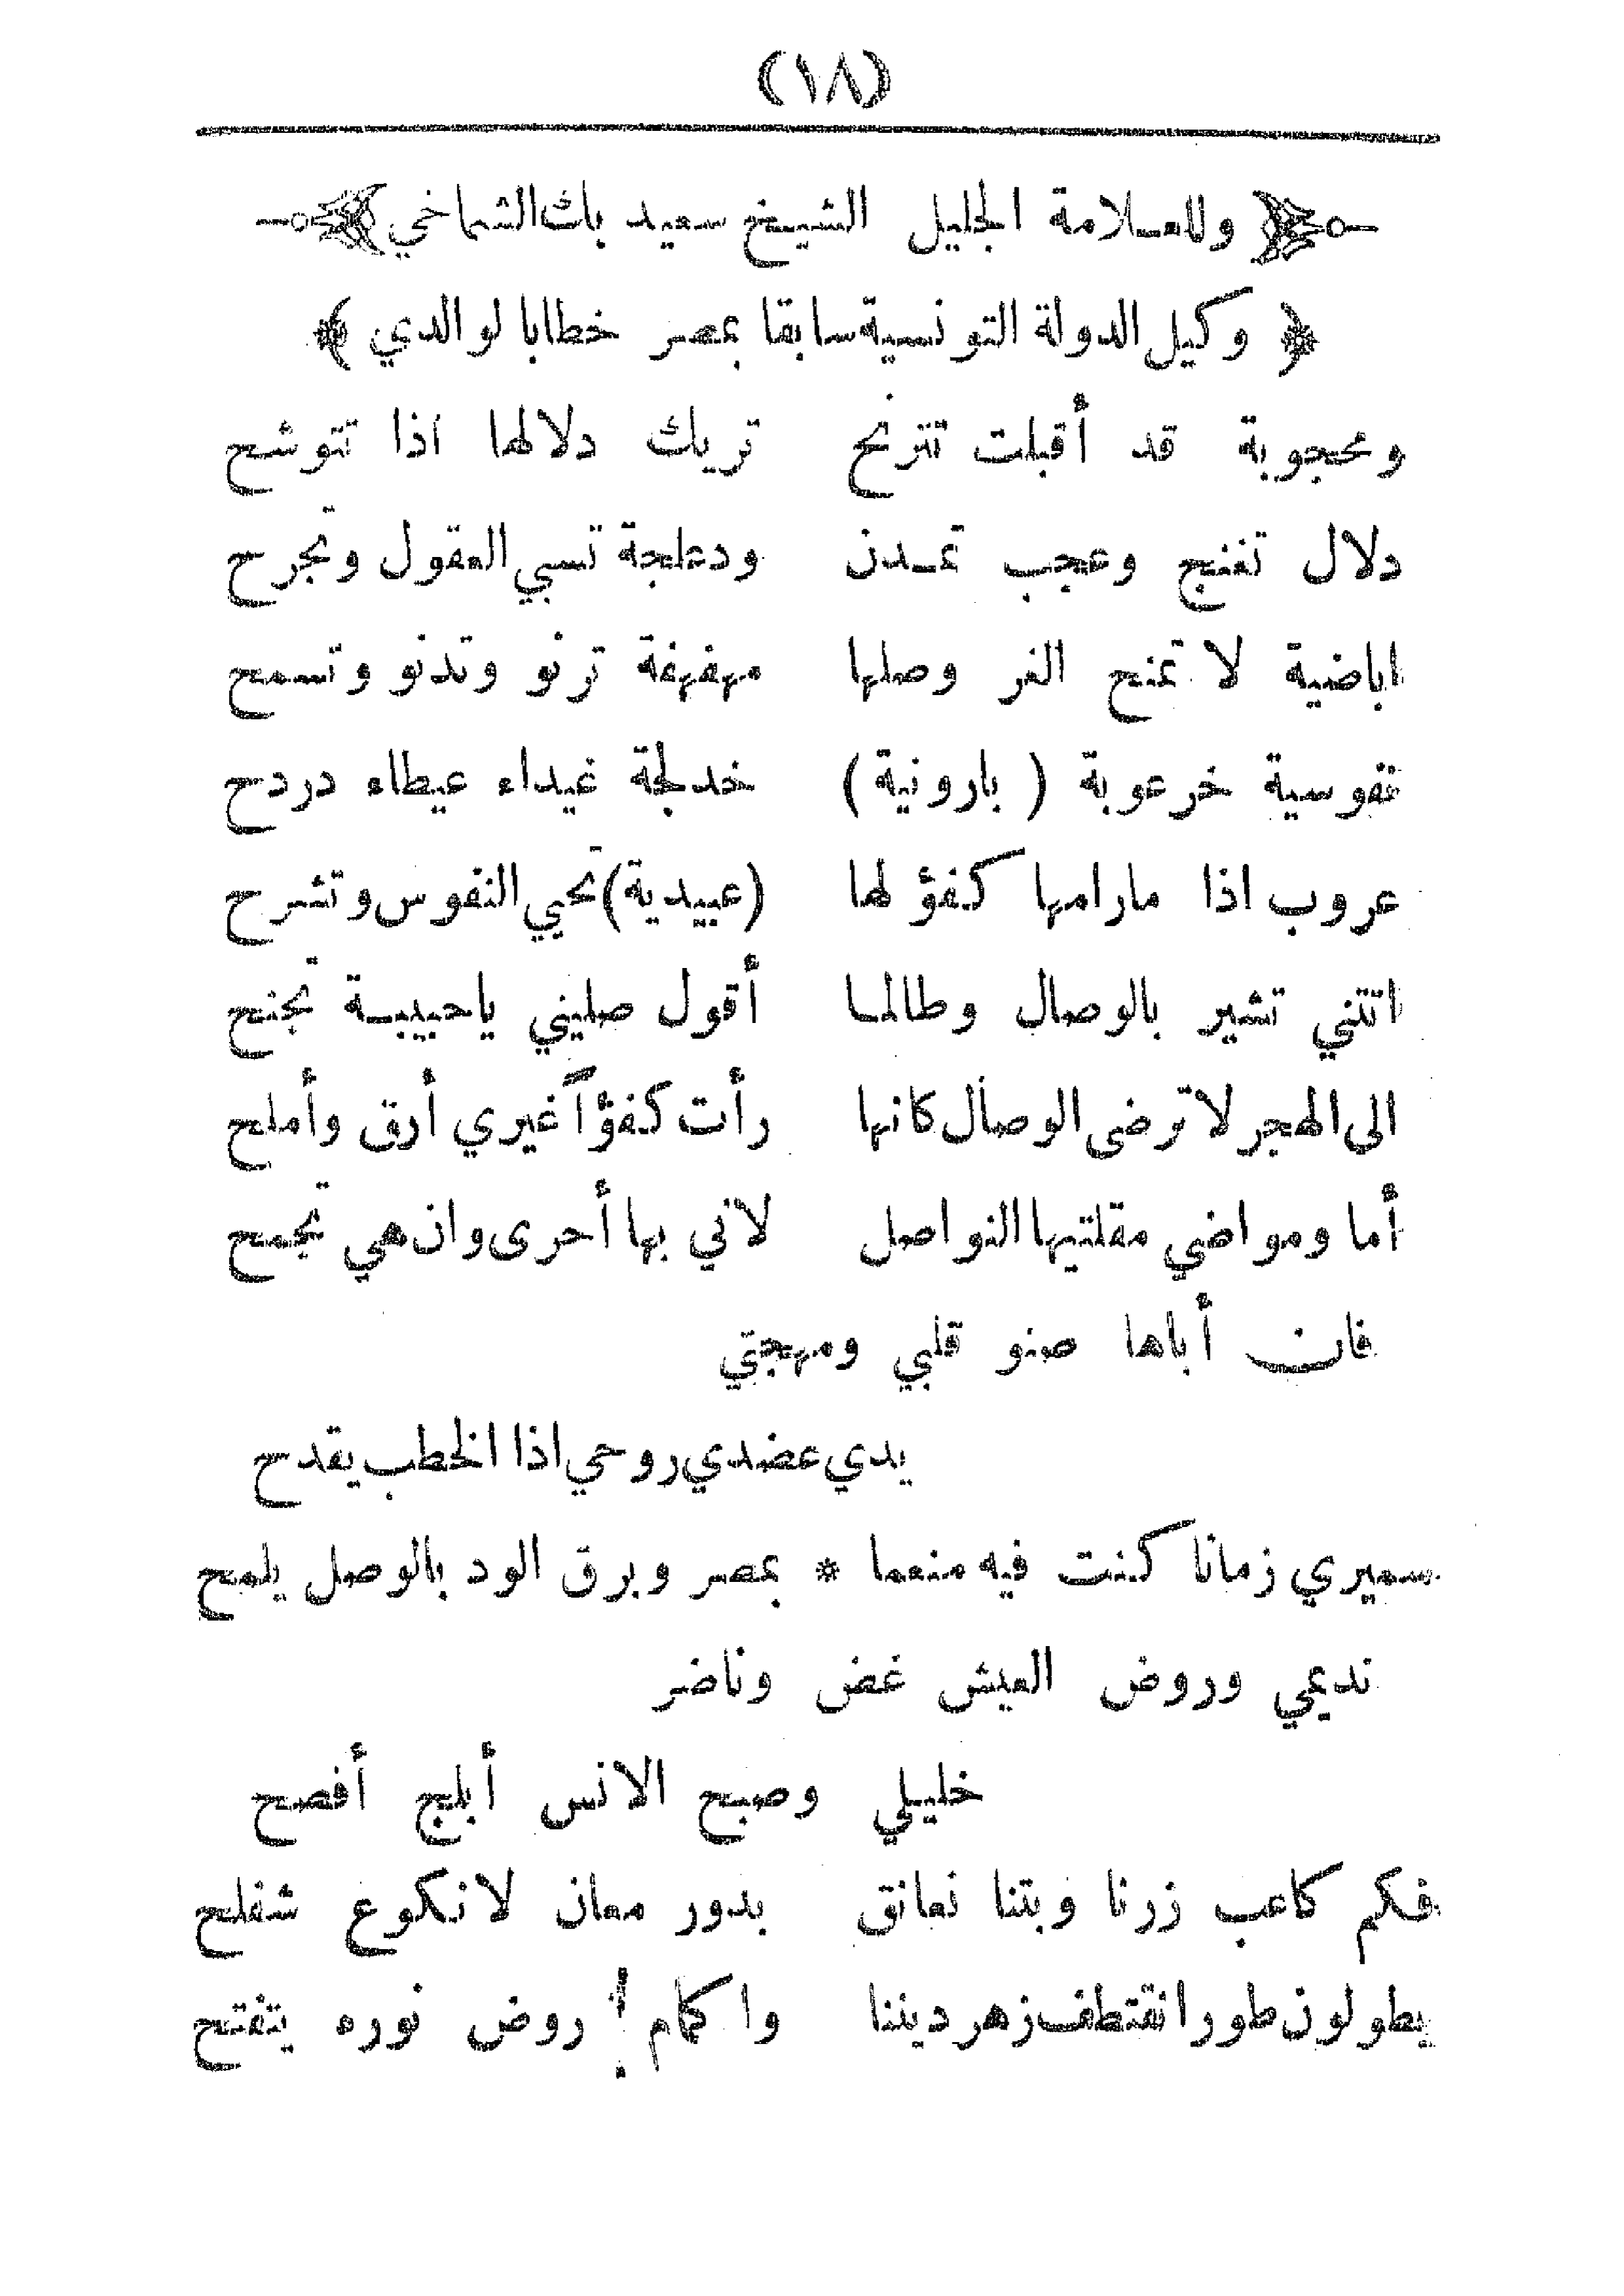 (١٨)
﴿ وللعلامة الجليل الشيخ سعيد باك الشماخي ﴾
﴿ وكيل الدولة التونسية سابقا بمصر خطابا لوالدي ﴾
ومحجوبة قد أقبلت تترنح تريك دلالها اذا تتوشح
دلال تغنج وعجب تمدن ودعلجة تسبي العقول وتجرح
اباضية لا تمنح الغر وصلها مهفهفة ترنو وتدنو وتسمح
نفوسية خرعوبة ( بارونية ) خدلجة غيداء عيطاء دردح
عروب اذا مارامها كفؤ لها (عبيدية) تحيي النفوس وتشرح
اتتني تشير بالوصال وطالما أقول صليني ياحبيبة تجنح
الى الهجر لا ترضى الوصال كانها رأت كفؤاً غيري أرق وأملح
أما ومواضي مقلتيها النواصل لاني بها أحرى وان هي تجمح
فان أباها صنو قلبي ومهجتي
يدي عضدي روحي اذا الخطب يقدح
سميري زمانا كنت فيه منعما * بمصر وبرق الود بالوصل يلمح
نديمي وروض العيش غض وناضر
خليلي وصبح الانس أبلج أفصح
فكم كاعب زرنا وبتنا نعانق بدور معان لا نكوع شفلح
يطولون طورا نقتطف زهر ديننا واكمام روض نوره يتفتح